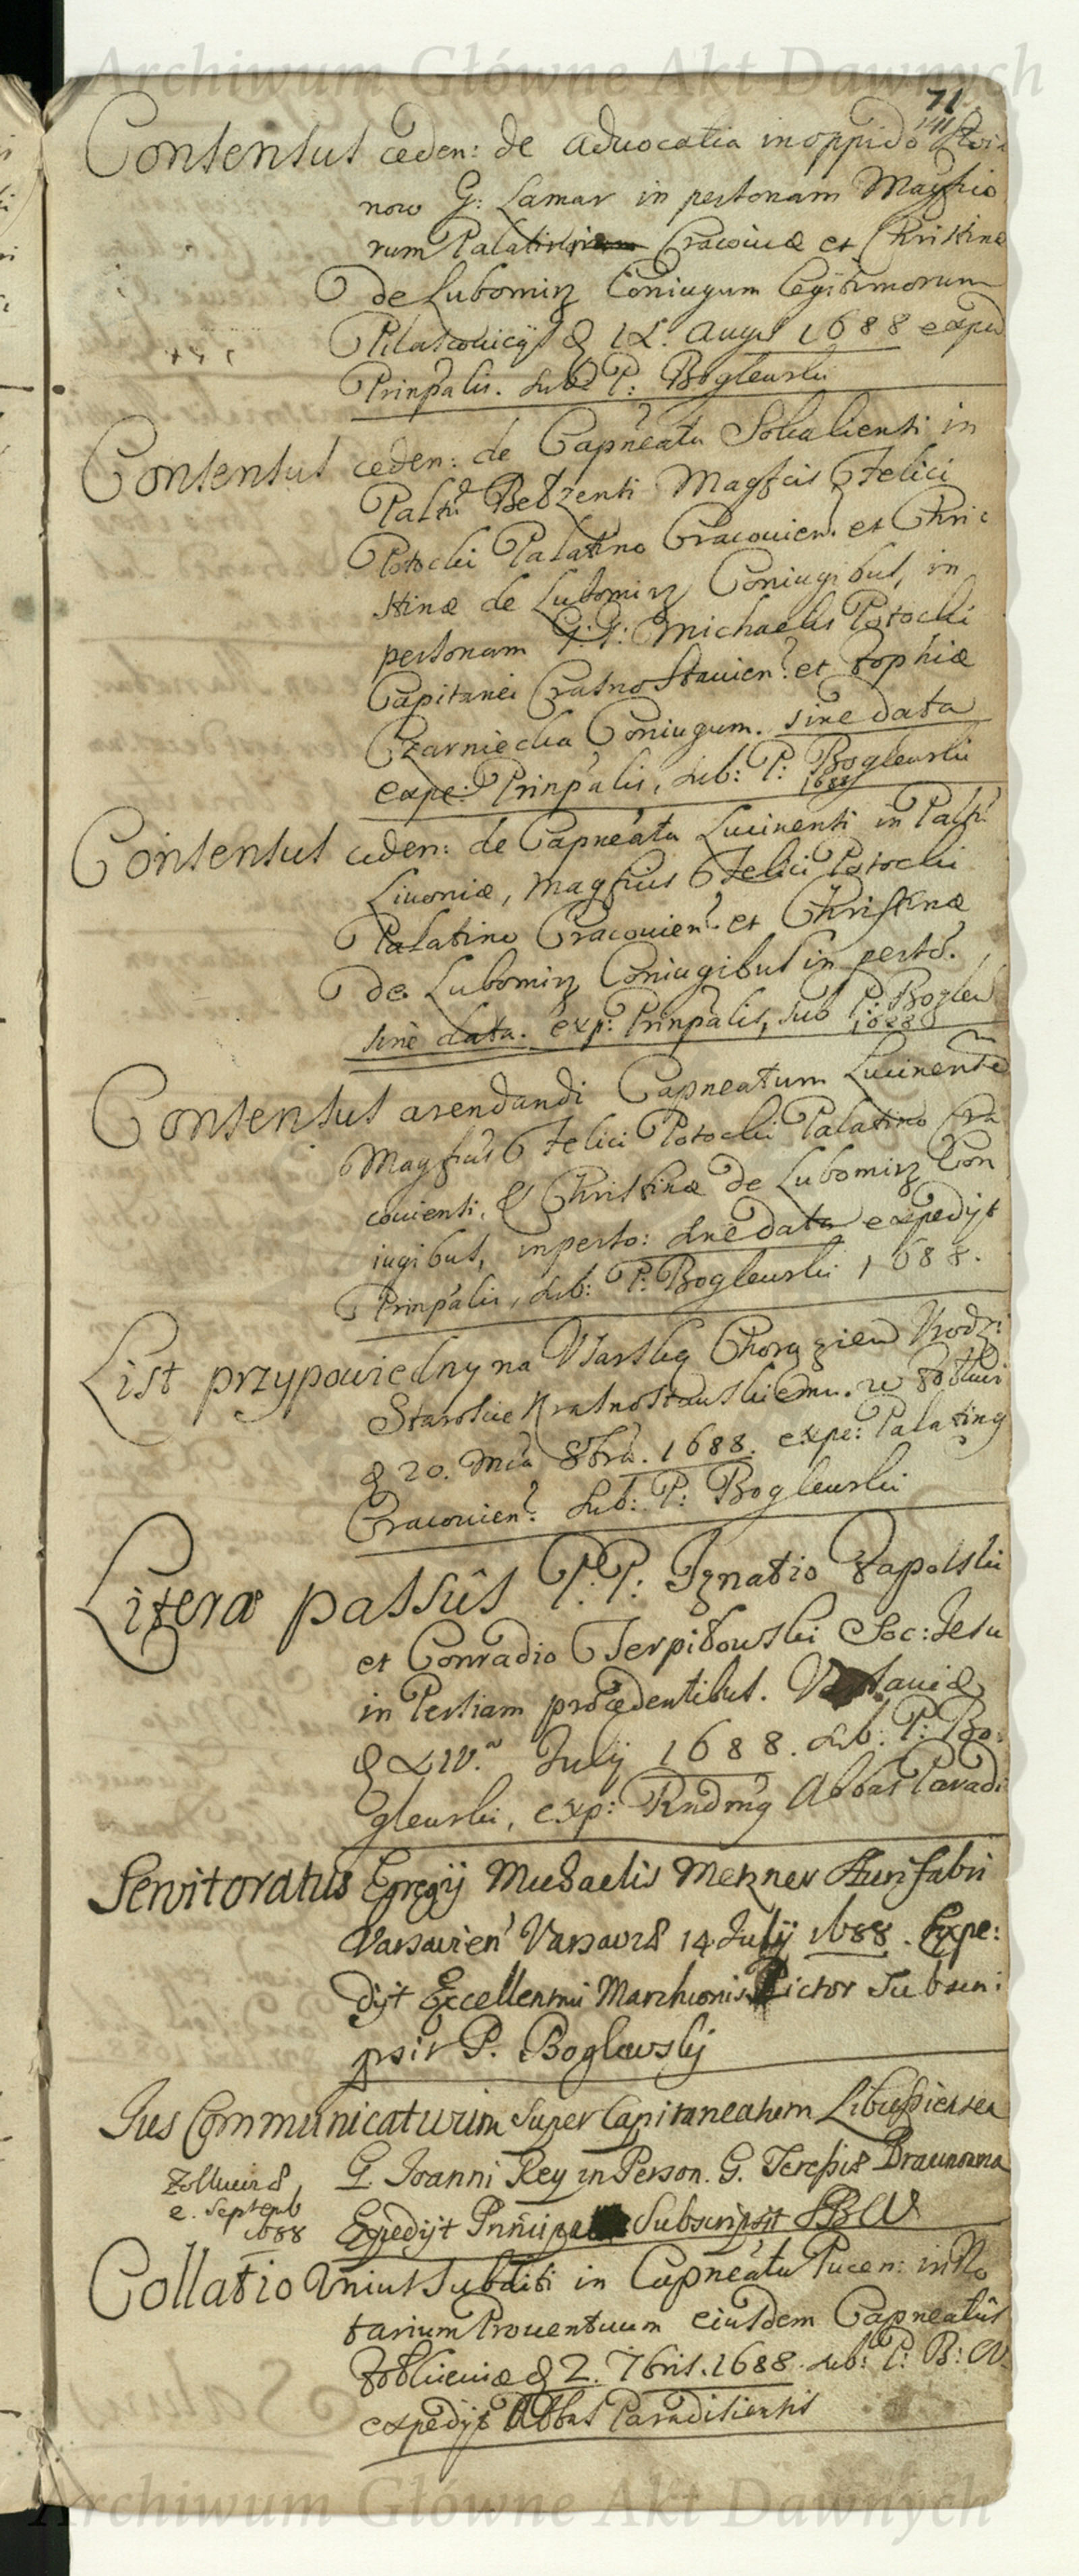 Archiwum Główne Akt Dawnych
71
141
Consensus ceden: de advocatia in oppido
now G: Lamar in personam Magfico
rum Palatin Cracoviæ et Christinæ
de Lubomirz Coniugum legitimorum
Pilascovicijs d 1 Augus 1688 exped
Prinpalis. sub P: Boglewski
Consensus ceden: de Capneatu Sokaliensi in
Palth Belzensi Magfcis Felici
Potocki Palatino Cracovien: et Chri
stinæ de Lubomirz Coniugibus, in
personam G.G: Michaelis Potocki
Capitanei Crasnostavien: et Zophiæ
Czarniecka Coniugum. sine data
expe: Prinpalis, sub: P: Boglewski
1688
Consensus ceden: de Capneatu Lucinensi in Palth
Livoniæ, Magficus Felici Potocki
Palatino Cracovien: et Christinæ
de Lubomirz Coniugibus in perso.
sine data. exp: Prinpalis, sub P: Boglew
1688
Consensus arendandi Capneatum Lucinense
Magficus Felici Potocki Palatino Cra
coviensi, & Christinæ de Lubomirz Con
iugibus, in perso: sine data expedijt
Prinpalis, sub: P: Boglewski 1688.
List przypowiedny na Usarską Chorągiew Urodz:
Staroscie Krasnostawskiemu. w Zolkwi
d 20. Mca 8bra. 1688. expe: Palating
Cracovien: sub: P: Boglewski
Literæ passûs P.P: Ignatio Zapolski
et Conradio Terpilowski Soc: Jesu
in Persiam procedentibus. Varsaviæ
d XIV. July 1688. sub: P: Bo
glewski, exp: Rndmg Abbas Paradi
Servitoratus Egregij Michaelis Mezner Aurifabri
Varsavien Varsaviæ 14 July 1688. Expe:
dijt Excellenmi Marchionis Pictor Subscri:
psit P. Boglewskij
Jus Communicativum super Capitaneatum
G. Joanni Rey in Person. G. Teressiæ
Zolkwiæ,
e. Septemb
1688
Expedijt Prinnipa Subscripsit PBW
Collatio Unius Subditi in Capneatu Pucen: in No
tarium Proventuum eiusdem Capneatûs
Zolkieviæ d 2. 7bris. 1688. sub: P: B: W
expedijt Abbas Paradisiensis
Archiwum Główne Akt Dawnych